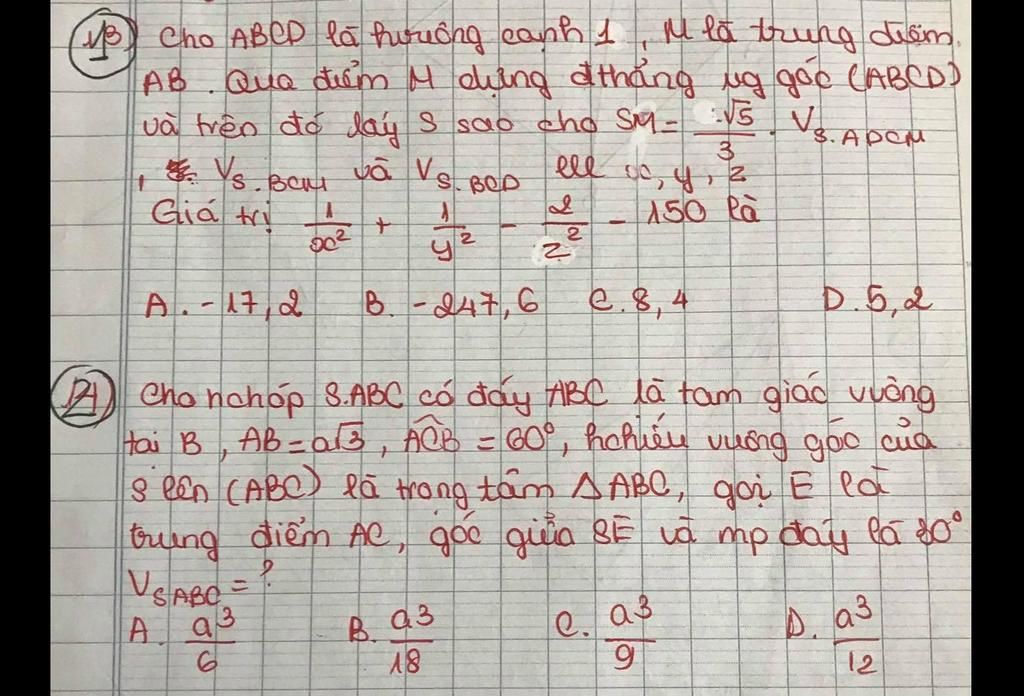 13 Cho ABCD là hvuông cạnh 1, M là trung điểm
AB. Qua điểm M dựng đthẳng vg góc (ABCD)
và trên đó lấy S sao cho SM = √5/3. V S.ADCM
, V S.BCM và V S.BCD lll x, y, z
Giá trị 1/x² + 1/y² - 2/z² - 150 là
A. -17,2 B. -247,6 C. 8,4 D. 5,2
Cho hchóp S.ABC có đáy ABC là tam giác vuông
tại B, AB = a√3, ACB = 60°, hchiếu vuông góc của
S lên (ABC) là trọng tâm ΔABC, gọi E là
trung điểm AC, góc giữa SE và mp đáy là 30°
V SABC = ?
A. a³/6 B. a³/18 C. a³/9 D. a³/12